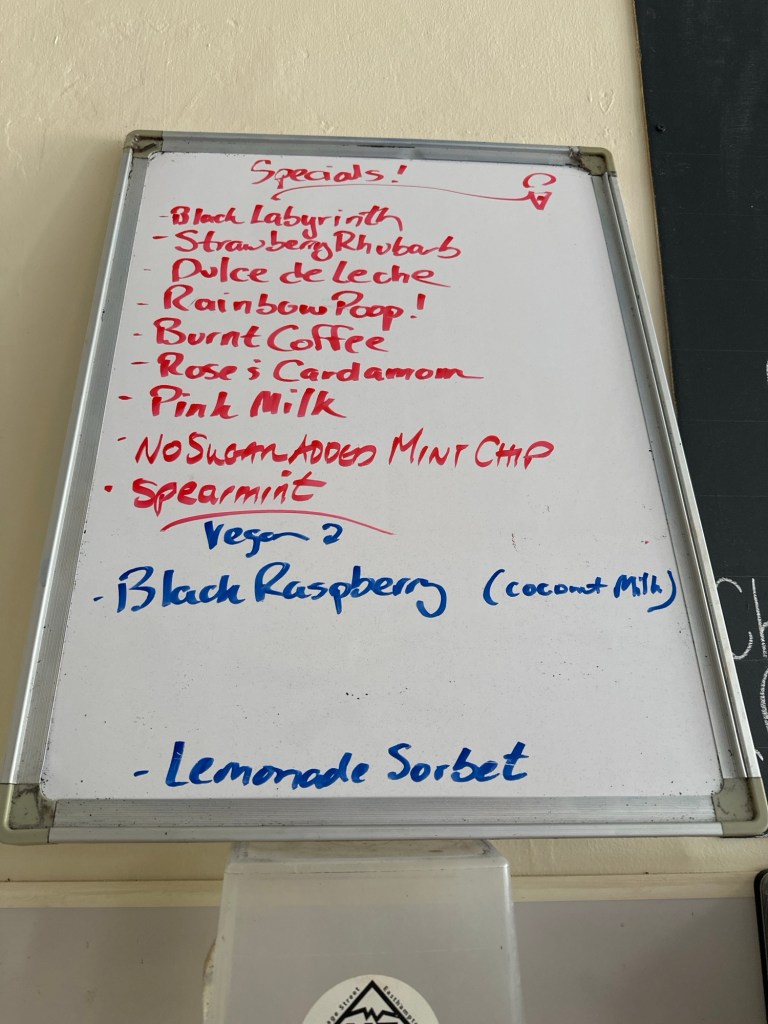 Specials!
- Black Labyrinth
- Strawberry Rhubarb
- Dulce de Leche
- Rainbow Poop!
- Burnt Coffee
- Rose & Cardamom
- Pink Milk
- NO SUGAR ADDED MINT CHIP
- Spearmint
Vegan
- Black Raspberry (coconut Milk)
- Lemonade Sorbet
Ch
Street